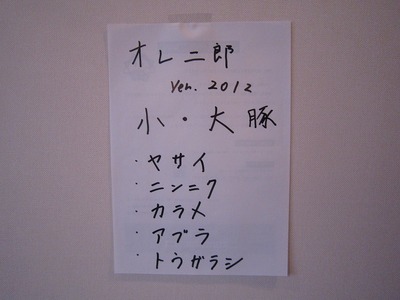 オレ二郎
Yen. 2012
小・大 豚
・ヤサイ
・ニンニク
・カラメ
・アブラ
・トウガラシ